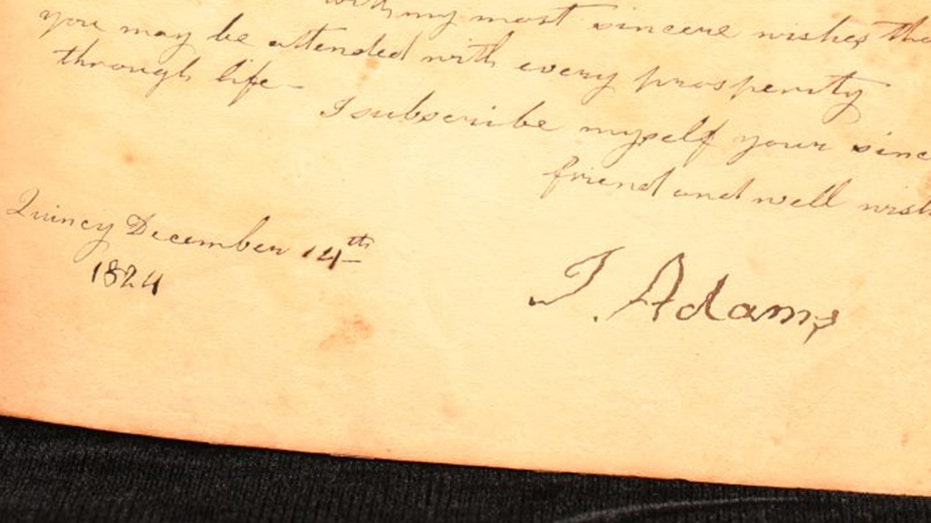 with my most sincere wishes tha
you may be attended with every prosperity
through life-
I subscribe myself your sinc
friend and well wish
Quincy December 14th
1824
J. Adams